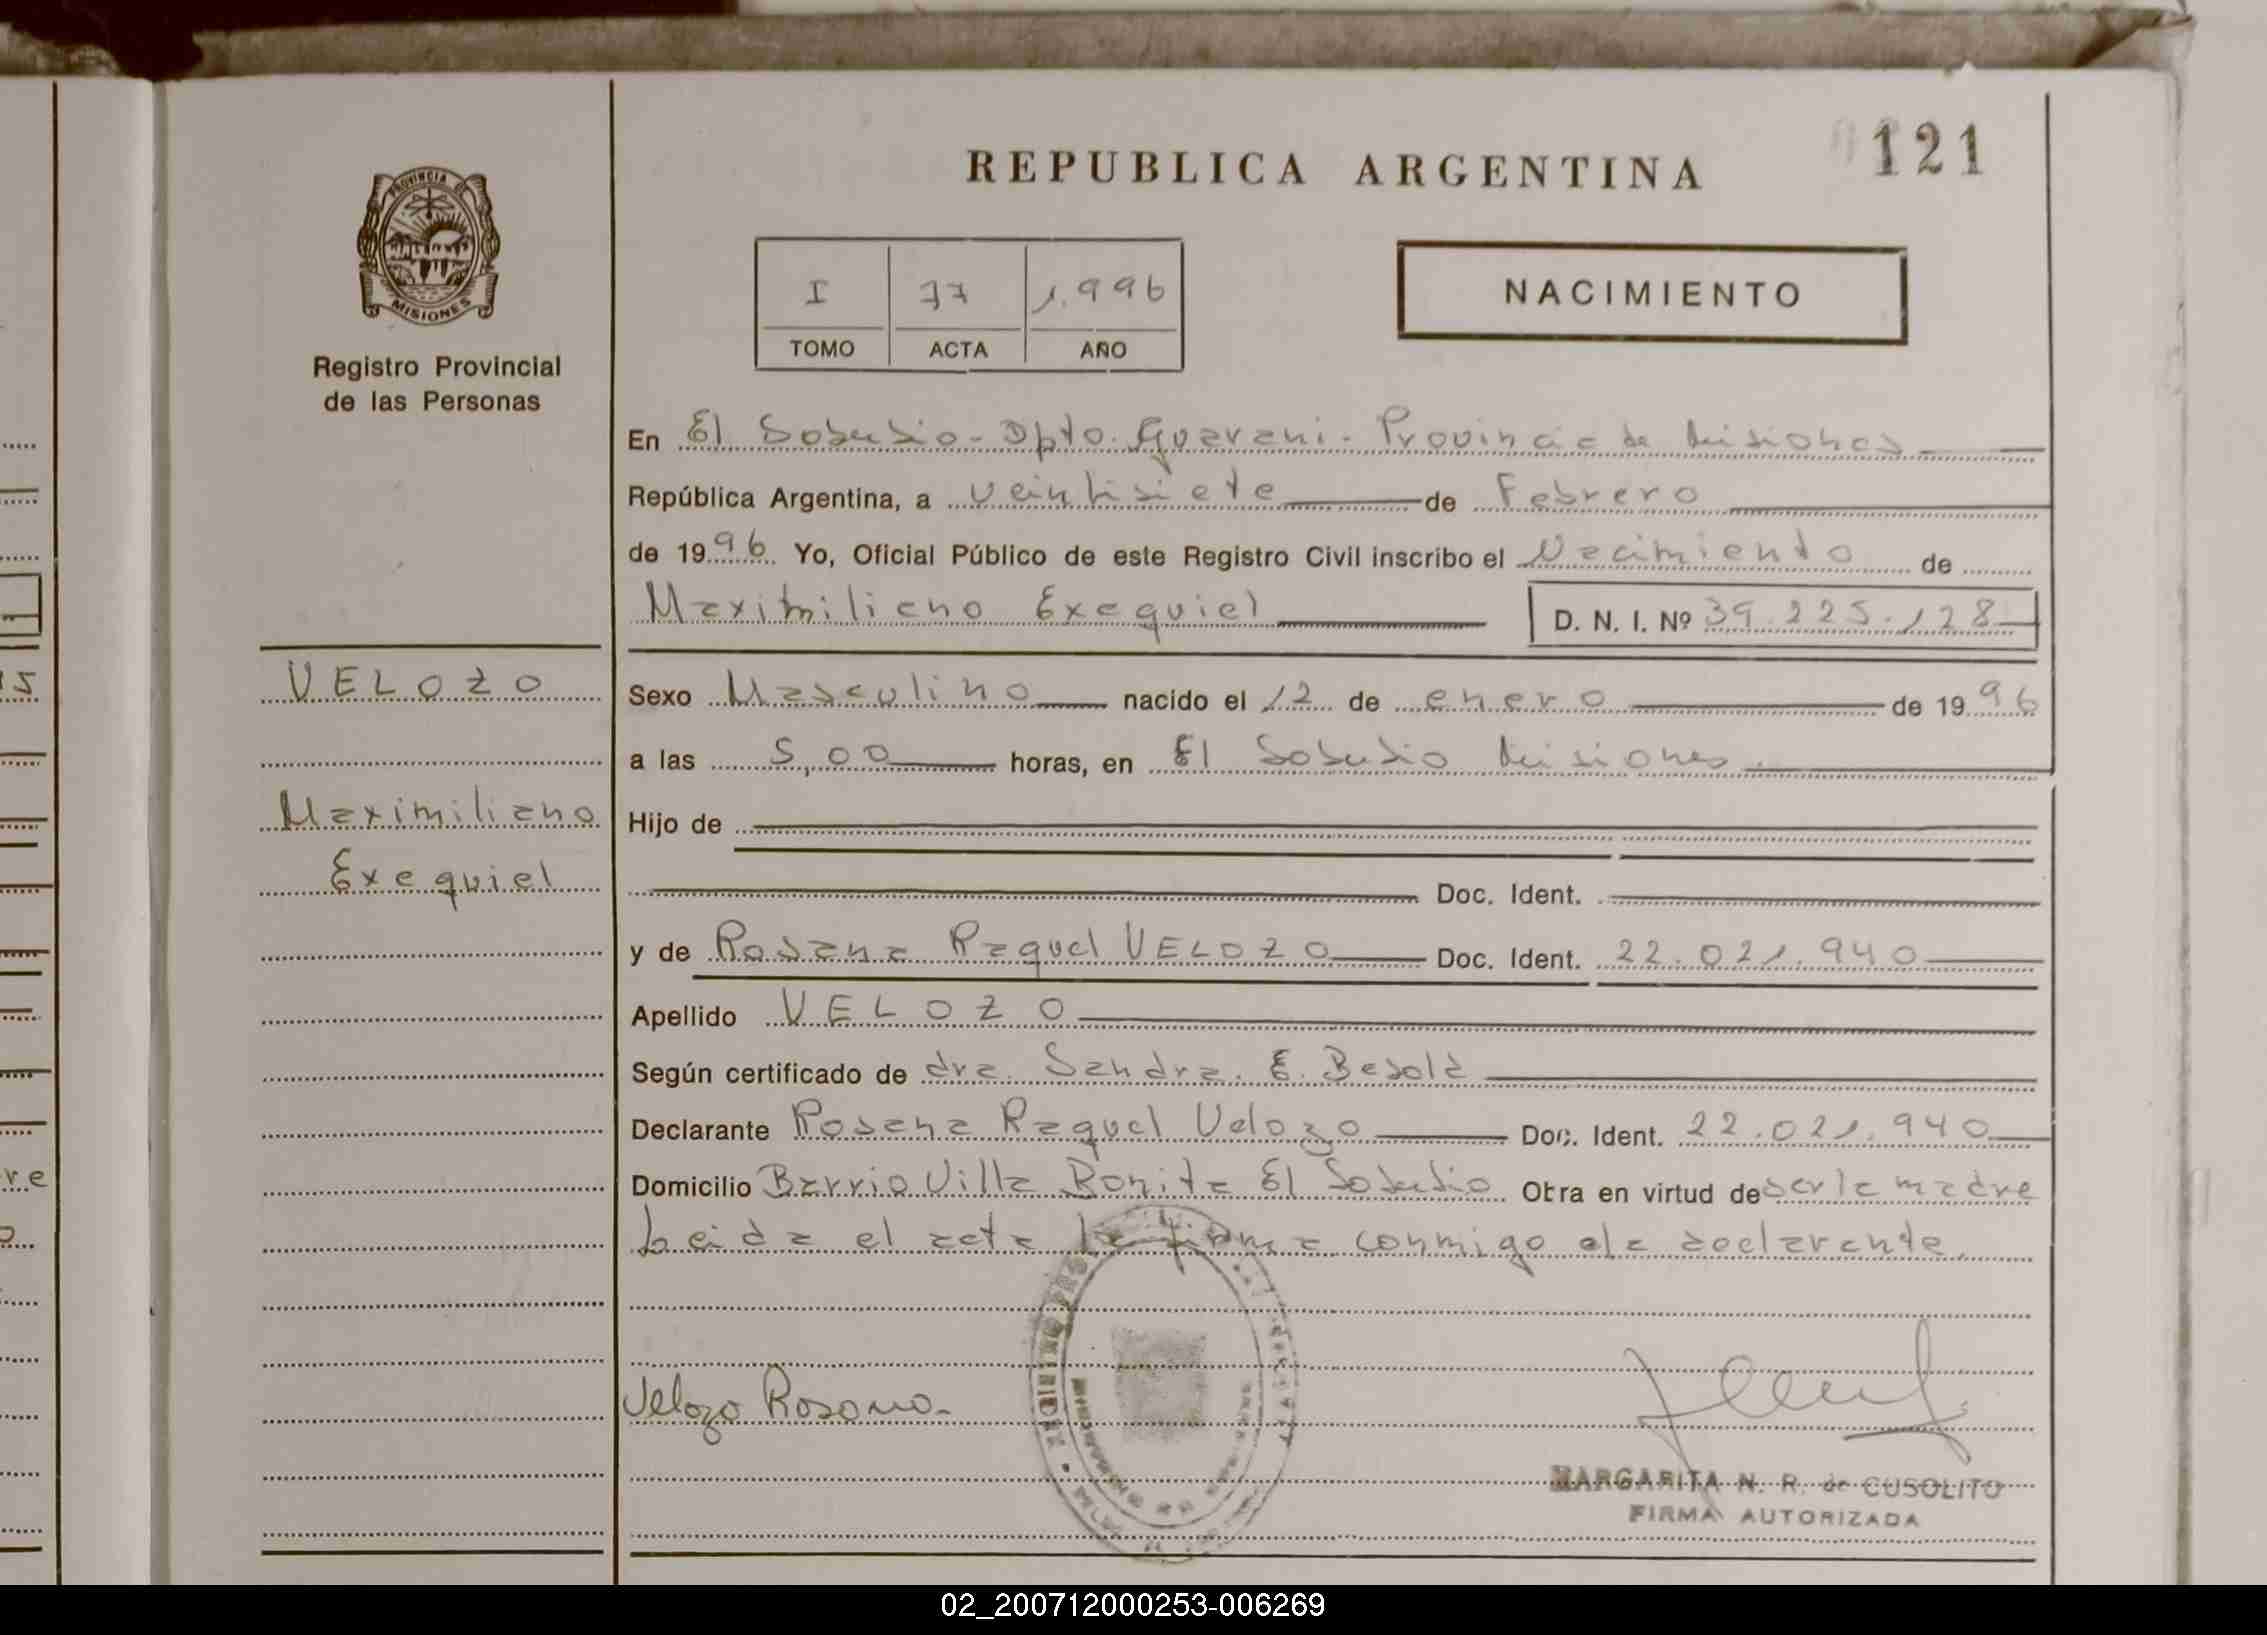 121
REPUBLICA ARGENTINA
PROVINCIA DE
MISIONES
Registro Provincial
de las Personas
I 77 1.996
TOMO ACTA AÑO
NACIMIENTO
En El Soberbio - Dpto. Guarani - Provincia de Misiones
República Argentina, a veintisiete de Febrero
de 1996 Yo, Oficial Público de este Registro Civil inscribo el Nacimiento de
Maximiliano Exequiel D. N. I. Nº 39.225.128
VELOZO
Maximiliano
Exequiel
Sexo Masculino nacido el 12 de enero de 1996
a las 5,00 horas, en El Soberbio Misiones.
Hijo de
Doc. Ident.
y de Rosana Raquel VELOZO Doc. Ident. 22.021.940
Apellido VELOZO
Según certificado de dra. Sandra. E. Besold
Declarante Rosana Raquel Velozo Doc. Ident. 22.021.940
Domicilio Barrio Villa Bonita El Soberbio Obra en virtud de ser la madre
Leida el acta la firma conmigo la declarante.
Velozo Rosana.
MARGARITA N. R. de CUSOLITO
FIRMA AUTORIZADA
02_200712000253-006269